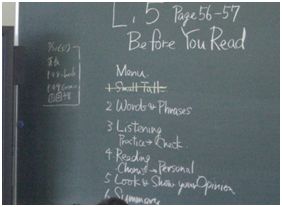 L.5 Page 56-57
Before You Read
Menu
1 Small Talk
2 Words & Phrases
3 Listening
Practice → Check
4 Reading
Chorus → Personal
5 Look & Show your Opinion
6 Summary